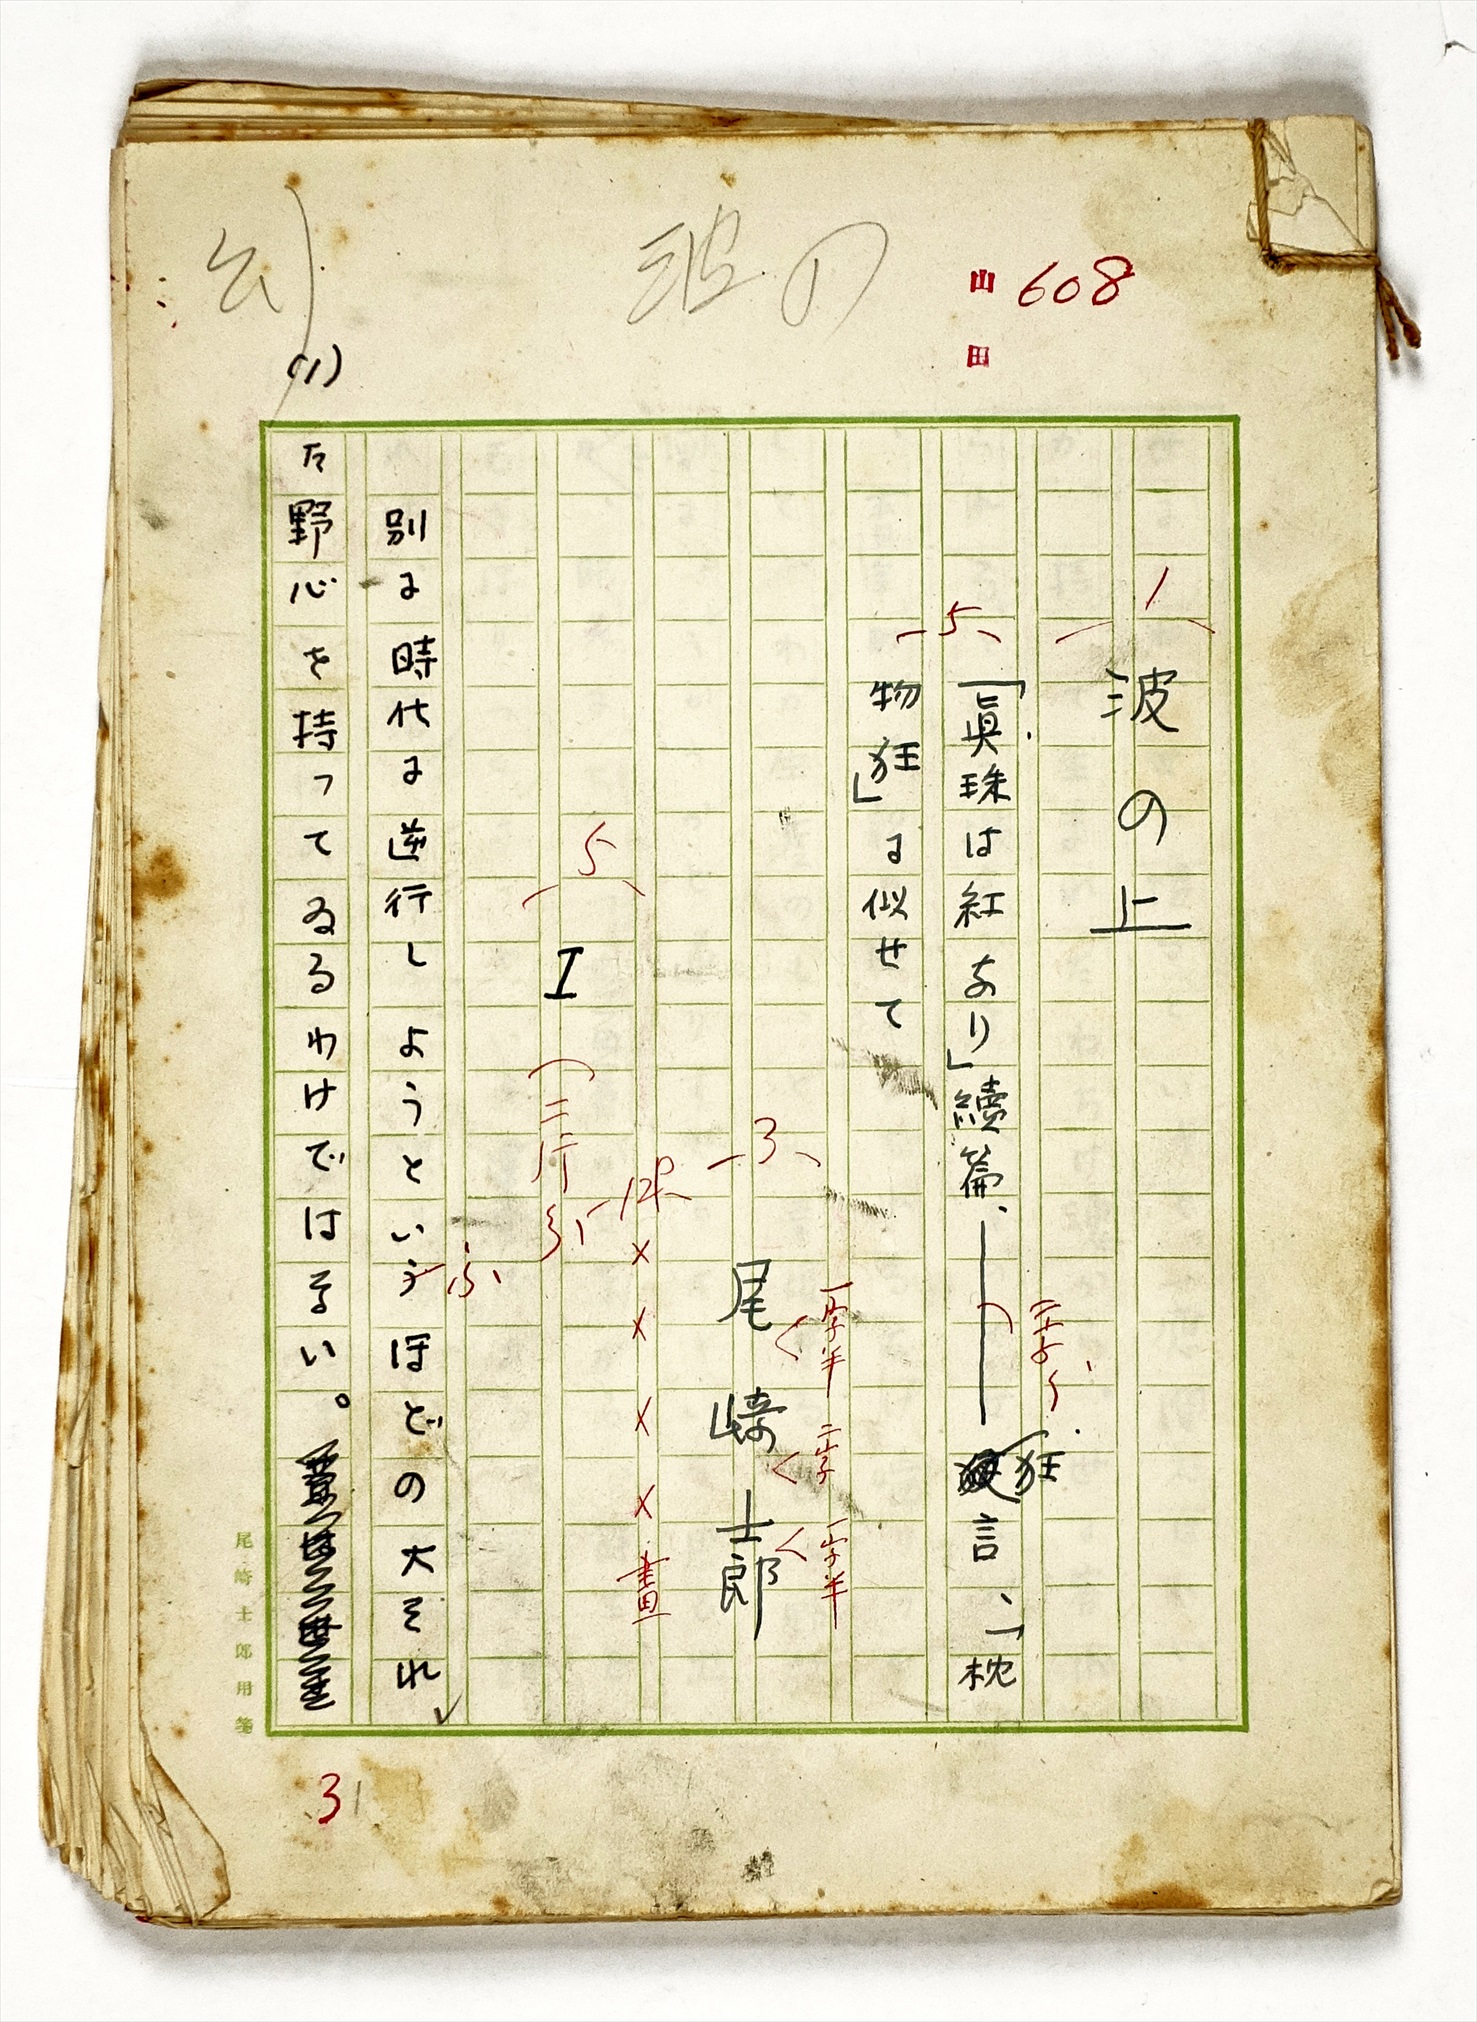 波の
山田
608
(1)
1
波の上
5
「眞珠は紅あり」續篇、――狂言、「枕
二字分
物狂」に似せて
3
尾崎士郎
一字半
二字
一字半
12P
××××畫
5
I
二行
引
別に時代に逆行しようというほどの大それ
ふ
た野心を持ってゐるわけではない。
尾崎士郎用箋
31